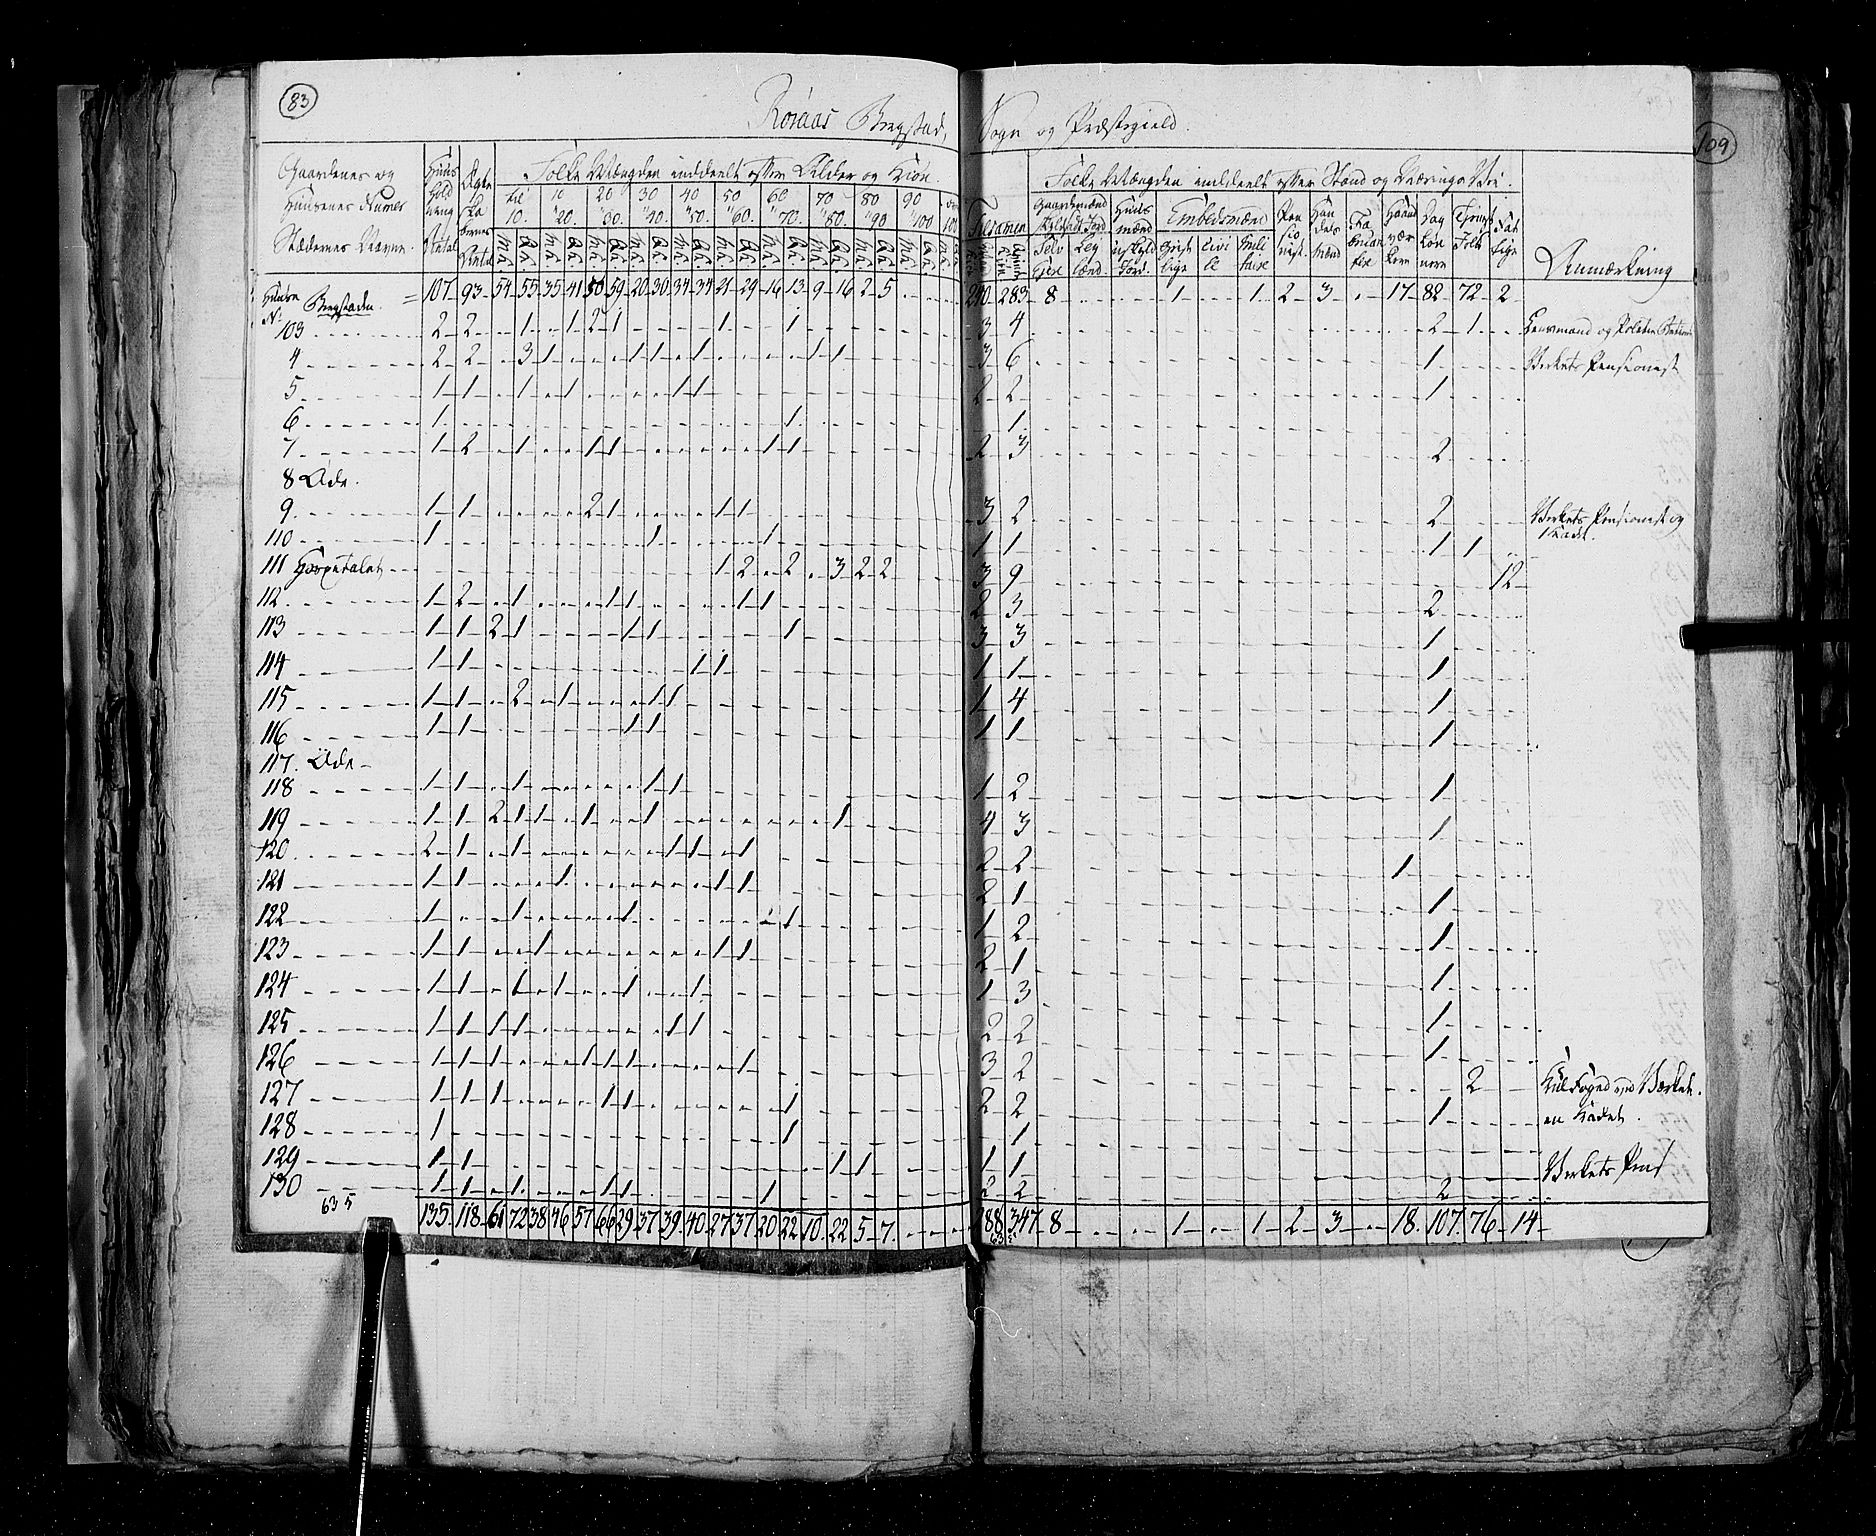 83
Röraas Bergstad, Sogn og Præstegield.
109
Gaardenes og Huusenes Numer Stædernes Navne.
Huus Hold nings Antal
Ægte Pa rernes Antal
Folke Mængden inddeelt efter Alder og Kiön.
til 10. 10 " 20. 20 " 30. 30 " 40. 40 " 50. 50 " 60. 60 " 70. 70 " 80. 80 " 90 90 " 100
Tilsamen
Folke Mængden inddeelt efter Stand og Nærings Vei.
Gaardmænd
Huus mænd
Embedsmænd
Geist lige Civi le Mili taire
Pen sio nist.
Han dels mænd
Haand vær kere
Dag Lön nere
Tieneste Folk
Fat tige
Anmærkning
Huuse No Bergstaden = 107 93 54 55 35 41 50 59 20 30 34 34 21 29 16 13 9 16 2 5 240 283 8 1 1 2 3 17 82 72 2
103 2 2 1 1 2 1 1 1 3 4 2 1 Lensmand og Politie Betient
4 2 2 3 1 1 1 1 1 1 3 6 1 Verkets Pensionist
5 1 1 1 1 1 1 2 2 1
6 1 1 1
7 1 2 1 1 1 1 1 2 3 2
8 Öde.
9 1 1 2 1 1 1 3 2 2 Verkets Pensionist og
110 1 1 1 1 1 1 1
111 Hospitalet 1 2 2 3 2 2 3 9 12
112 1 2 1 1 1 1 1 2 3 2
113 1 1 2 1 1 1 1 3 3 1
114 1 1 1 1 1 1 1
115 1 1 2 1 1 1 1 4 1
116 1 1 1 1 1 1 1
117. Öde
118 1 1 1 1 1 1 2 1
119 1 1 2 1 1 1 1 1 4 3 1
120 2 1 1 1 1 1 2 2 1
121 1 1 1 1 1 2 1 1
122 1 1 1 1 1 2 1
123 1 1 1 1 1 2 1 1
124 1 1 1 1 1 1 1 3 1
125 1 1 1 1 1 1 2 2 1
126 1 1 1 1 1 1 1 3 2 2 Kulfoged ved Værket.
127 1 1 1 1 1 1 2 2 1 en Kadet.
128 1 1 1
129 1 1 1 1 1 1 Verkets Pens
130 1 1 1 1 1 1 1 2 2 2
635 135 118 61 72 38 46 57 66 29 37 39 40 27 37 20 22 10 22 5 7 288 347 8 1 1 2 3 18 107 76 14